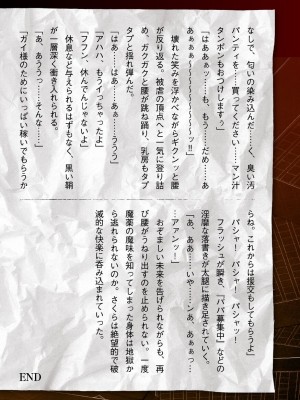 なしで、匂いの染み込んだ……く、臭い汚
パンティを……買ってください……マン汁
タンポンもおつけしますぅ」
「はああぁッ……も、もう……だめ……あ
あぁぁ〜〜〜〜〜〜〜〜ッ!!」
壊れた笑みを浮かべながらギクンッと腰
が反り返る。被虐の頂点へと一気に登り詰
め、ガクガクと腰が跳ね踊り、乳房もタプ
タプと揺れ弾んだ。
「はぁ……はぁ……あぁ……ううう」
「アハハ、もういっちゃったよ」
「フフン、休んでんじゃないよ」
休息など与えられるはずもなく、黒い鞘
が一層深く衝き入れられる。
「あ、あううっ……そんな……」
「ガイ様のためにいっぱい稼いでもらうか
らね。これからは援交もしてもらうよ」
パシャー！パシャー！パシャッ！
フラッシュが瞬き、「パパ募集中」などの
淫靡な落書きが太腿に描き足されていく。
「あ、ああ……いや……ンあ、あぁぁっ…
…アァンッ！」
おぞましい未来を告げられながらも、再
び腰がうねり出すのを止められない。一度
魔薬の魔味を知ってしまった身体は地獄か
ら逃れられないのか。さくらは絶望的で破
滅的な快楽に呑み込まれていった。
END